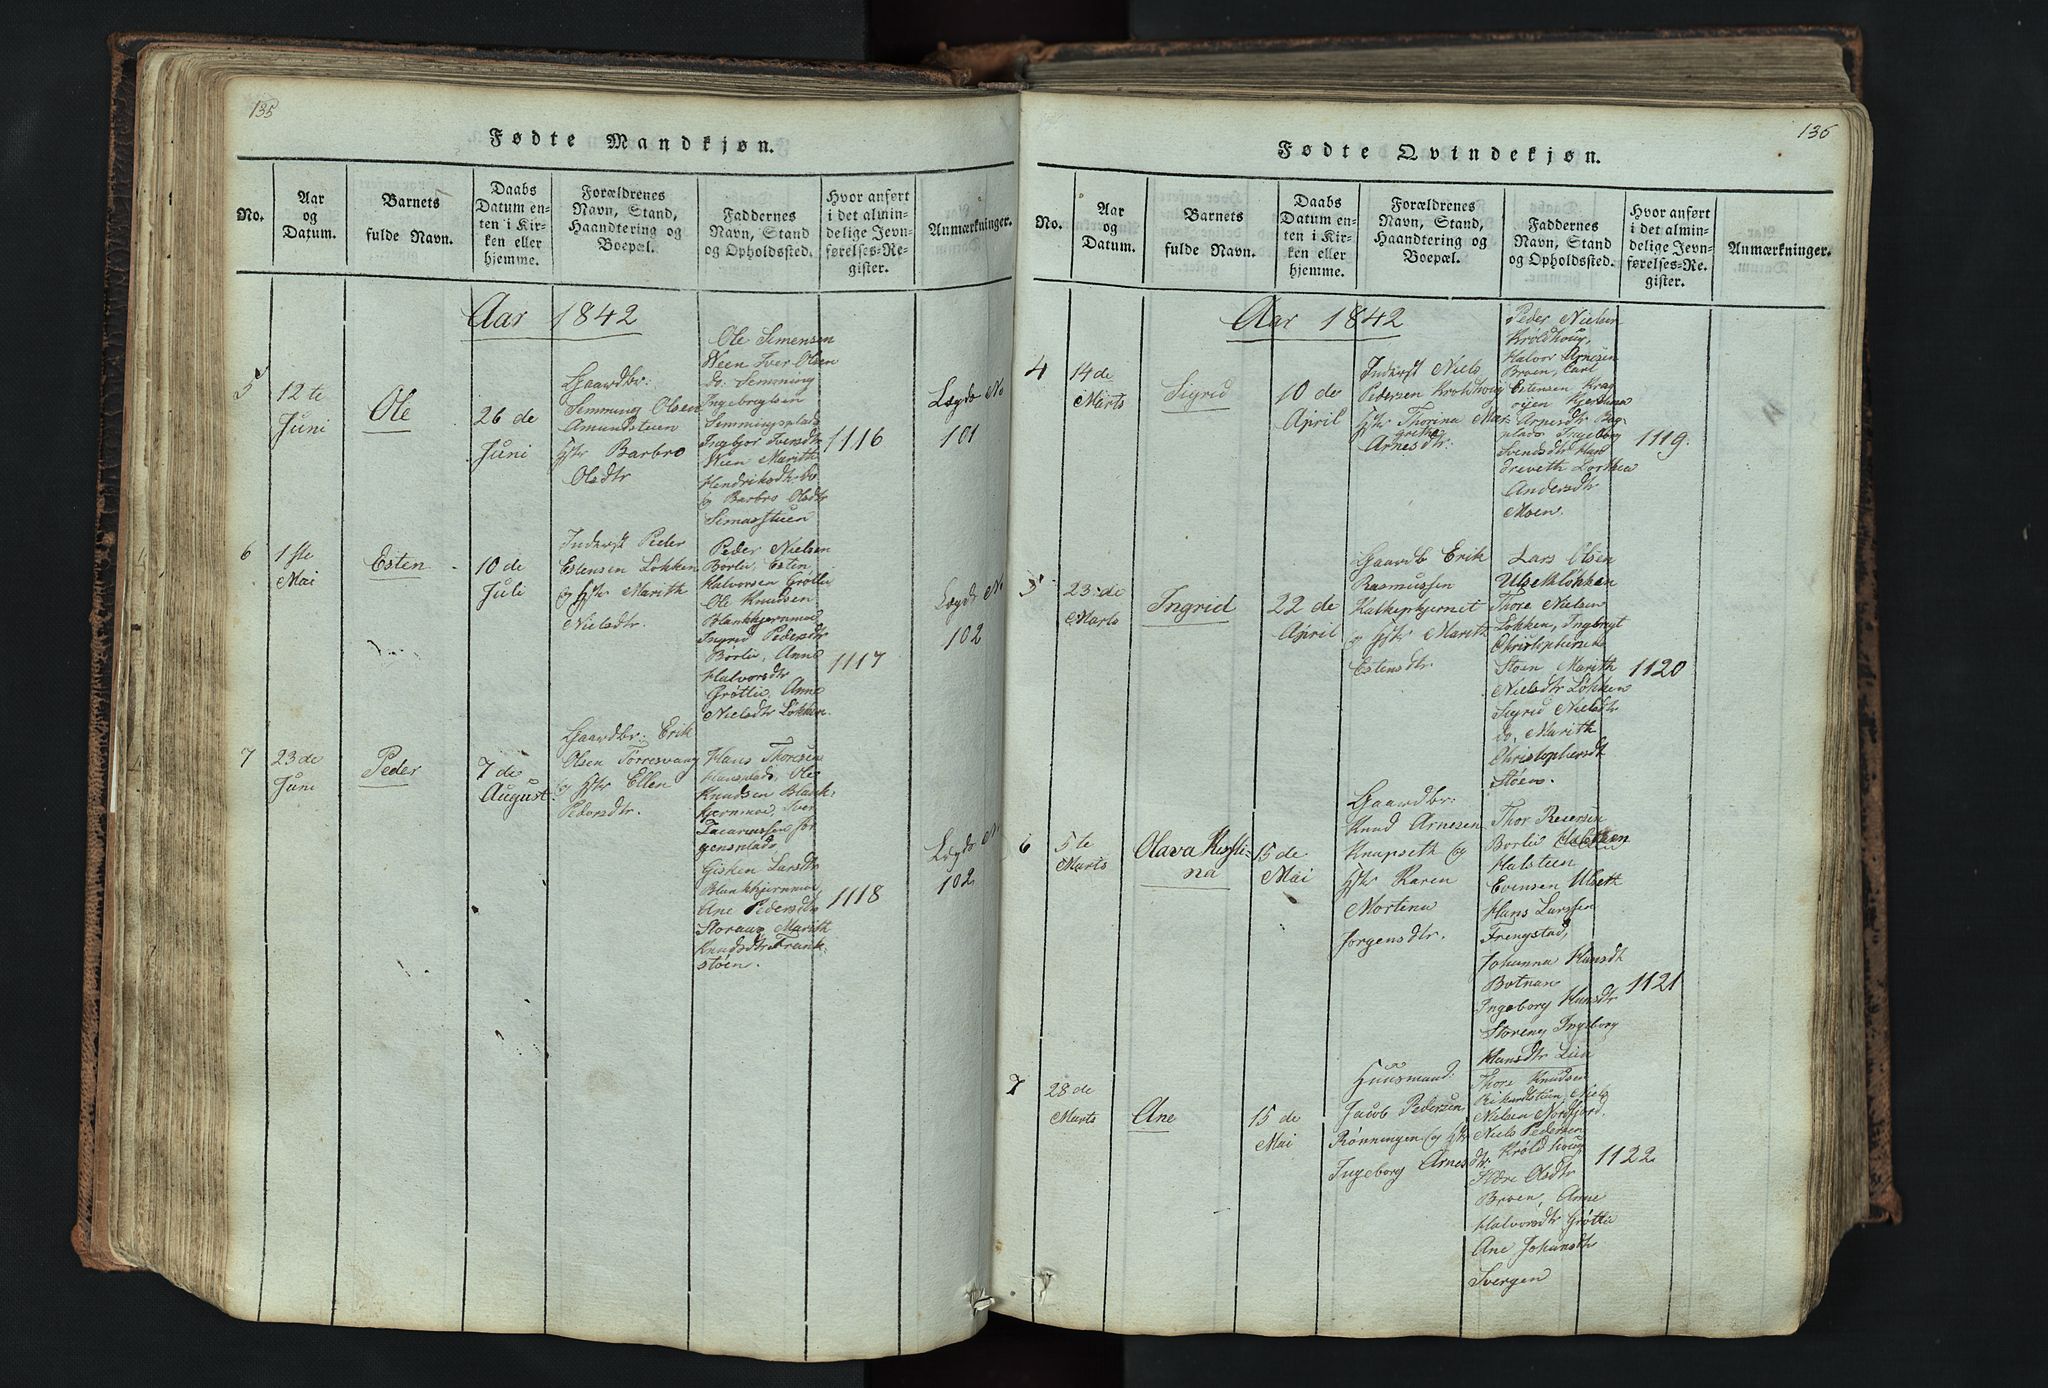 135
Fødte Mandkjøn.
No.
Aar
og
Datum.
Barnets
fulde Navn.
Daabs
Datum en-
ten i Kir-
ken eller
hjemme.
Forældrenes
Navn, Stand,
Haandtering og
Boepæl.
Faddernes
Navn, Stand
og Opholdssted.
Hvor anført
i det almin-
delige Jevn-
førelses-Re-
gister.
Anmærkninger.
Aar 1842
5
12te
Juni
Ole
26de
Juni
Gaardbr:
Semming Olsen
Amundstuen
Hstr Barbro
Olsdtr
Ole Simensen
Ween Iver Olsen
do. Semming
Ingebrigtsen
Semmingsplads
Ingbor Iversdtr
Wien Marith
Hendriksdtr do
og Barbro Olsdtr
Simastuen
1116
Lægds No
101
6
1ste
Mai
Esten
10de
Juli
Inderst Peder
Estensen Løkken
og Hstr Marith
Nielsdtr.
Peder Nielsen
Borlie, Esten
Halvorsen Grøtlie
Ole Knudsen
Blankkjernmoe
Ingrid Pedersdtr
Børlie, Anne
Halvorsdtr
Grøtlie, Anne
Nielsdtr Løkken
1117
Lægds No
102
7
23de
Juni
Peder
7de
August
Gaardbr: Erik
Olsen Torresvang
og Hstr Ellen
Pedersdtr.
Hans Thoresen
Hansplads, Ole
Knudsen Blank-
kjernmoe Iver
Zacariassen Jør
gensplads
Gisken Larsdtr
Blankkjernmoe
Ane Pedersdtr
Storaas Marith
Knudsdtr Frank
støen.
1118
Lægds N
102
136
Fødte Qvindekjøn.
No.
Aar
og
Datum.
Barnets
fulde Navn.
Daabs
Datum en-
ten i Kir-
ken eller
hjemme.
Forældrenes
Navn, Stand,
Haandtering og
Boepæl.
Faddernes
Navn, Stand
og Opholdssted.
Hvor anført
i det almin-
delige Jevn-
førelses-Re-
gister.
Anmærkninger.
Aar 1842
4
14de
Marts
Sigrid
10de
April
Inderst Niels
Pedersen Kroldhoug
Hstr Thorina Mar
grethe
Arnesdtr.
Peder Nielsen
Kroldhoug,
Halvor Arnesen
Broen, Carl
Estensen Krog
Arnesdtr
plads Ingeborg
Svendsdtr
Andersdtr
Moen.
1119.
5
23de
Marts
Ingrid
22de
April
Gaardb Erik
Rasmussen
Kalkepkjernet
og Hstr Marith
Estensdtr.
Lars Olsen
Ulsetløkken
Thore Nielsen
Løkken, Ingbrigt
Christophersen
Støen Marith
Nielsdtr Løkken
Sigrid Nielsdtr
do, Marith
Christophersdt
Støen.
1120
6
5te
Marts
Olava Kersti-
na
15de
Mai
Gaardbr:
Knud Arnesen
Knapseth og
Hstr Karen
Mortena
Jørgensdtr.
Thor Resersen
Borlie
Halsteen
Evensen Ulseth
Hans Larssen
Frengstad,
Johanna Hansdt
Botnan
Ingeborg Hansdtr
Storeng Ingeborg
Hansdtr Lien
1121
7
28de
Marts
Ane
15de
Mai
Huusmand.
Jacob Pedersen
Rønningen og Hstr
Ingeborg Arnesdtr
Thore Knudsen
Rikardstuen, Niels
Nielsen Nordfjord.
Niels Pedersen
Krøldhoug
Olsdtr
Broen, Anne
Halvorsdtr Grøtlie
Ane Johansdtr
Svergen
1122